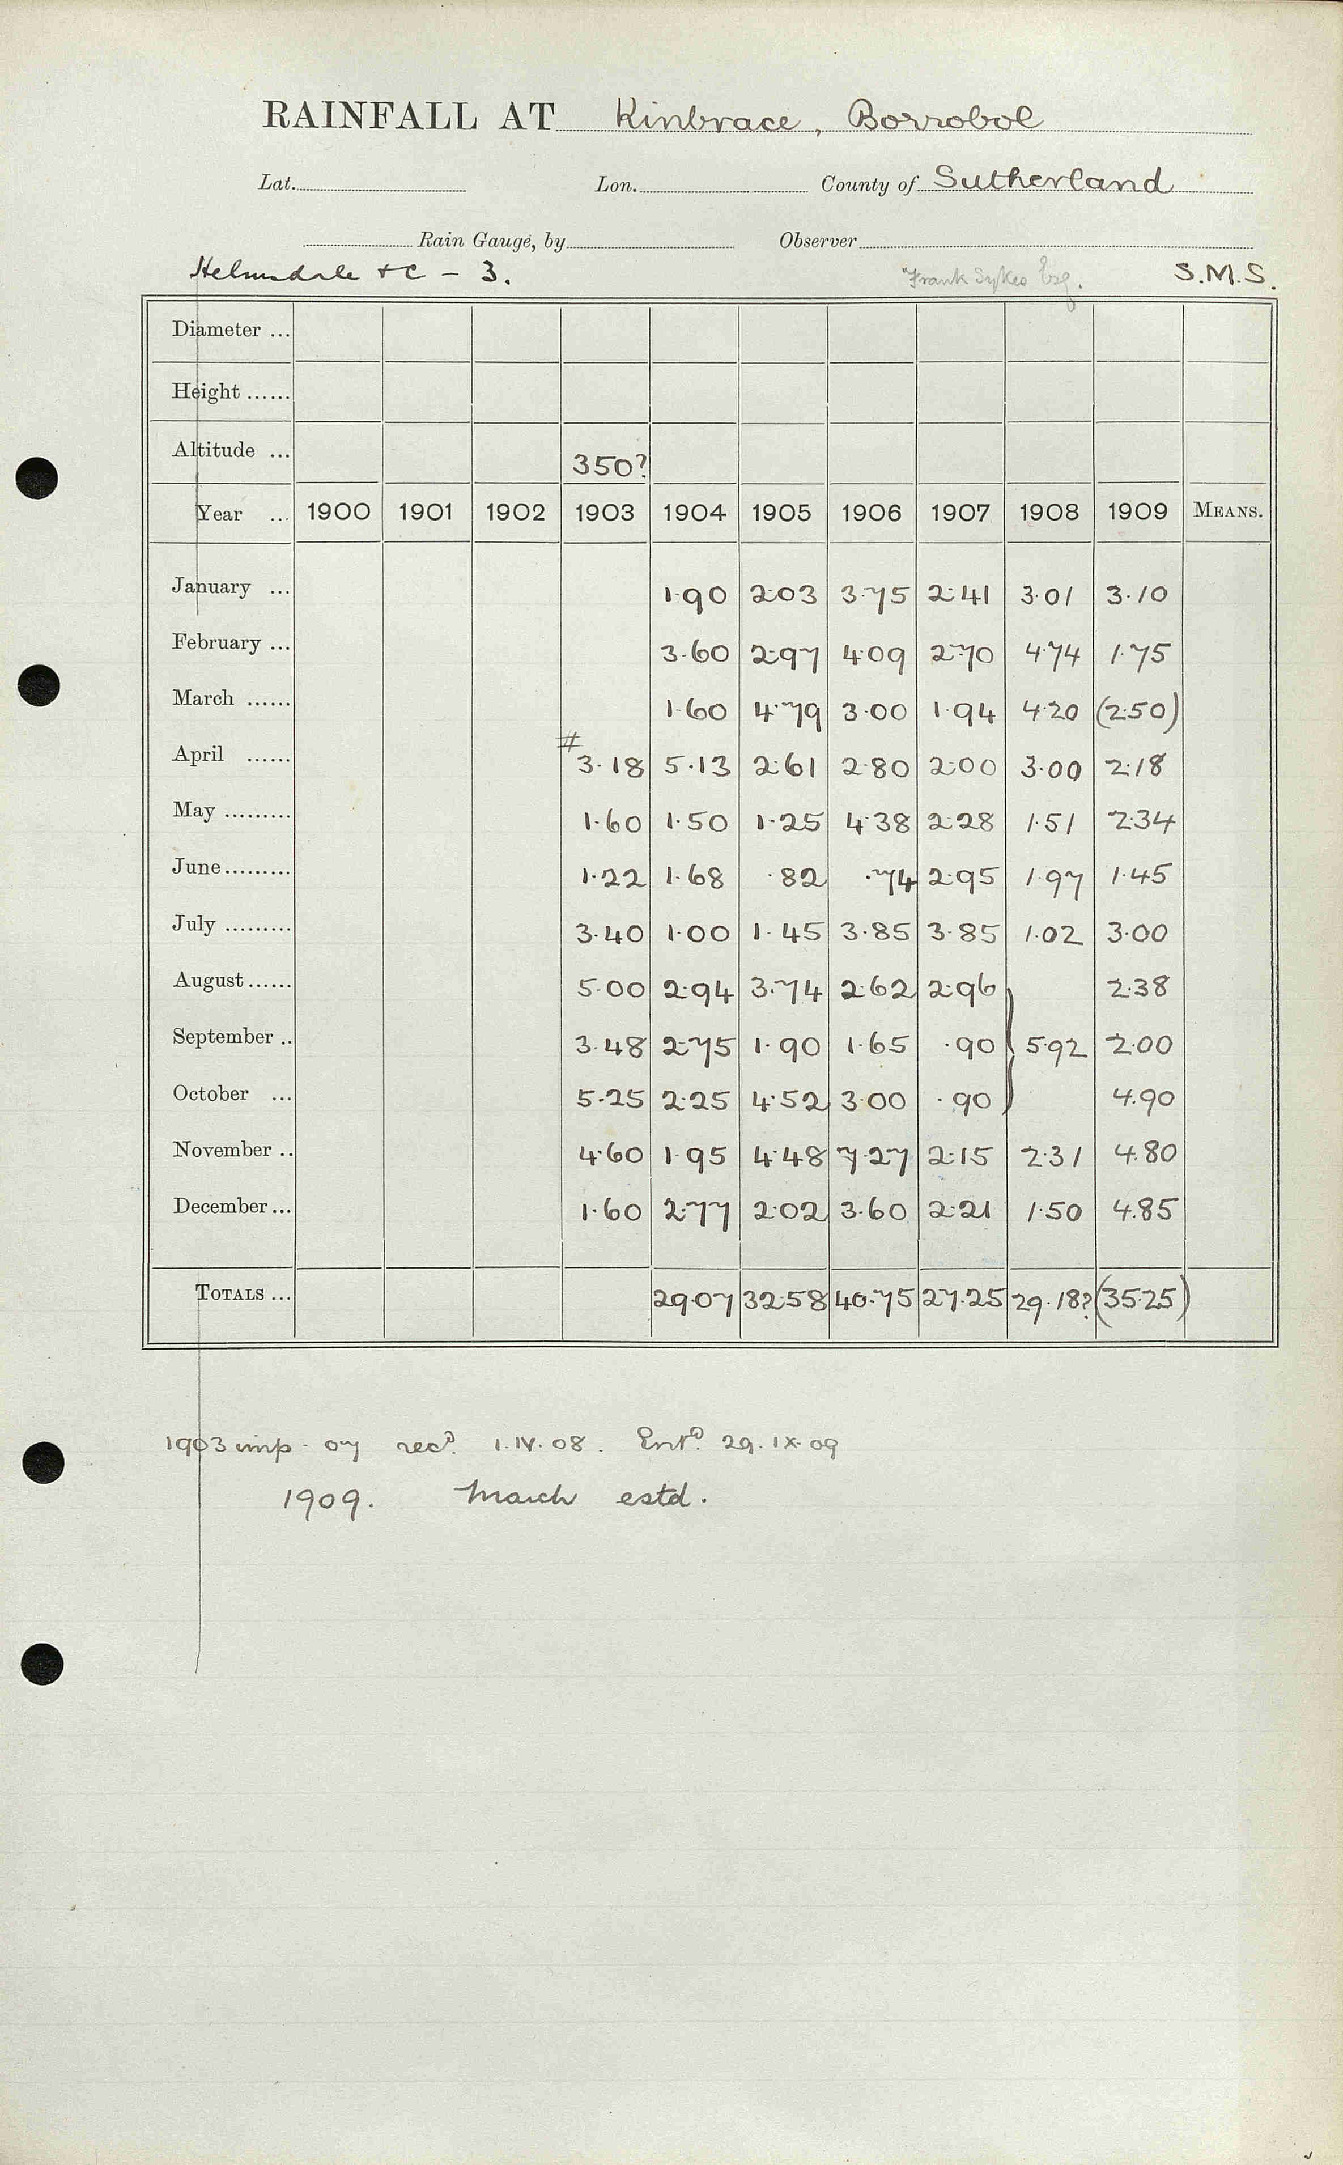 RAINFALL AT Kinbrace, Borrobol
Lat. Lon. County of Sutherland
Rain Gauge, by Observer
Helmsdale &c - 3. Frank Sykes Esq. S.M.S.
Diameter ...
Height ......
Altitude ... 350?
Year ... 1900 1901 1902 1903 1904 1905 1906 1907 1908 1909 MEANS.
January ... 1·90 2·03 3·75 2·41 3·01 3·10
February ... 3·60 2·97 4·09 2·70 4·74 1·75
March ...... 1·60 4·79 3·00 1·94 4·20 (2·50)
April ...... # 3·18 5·13 2·61 2·80 2·00 3·00 2·18
May ......... 1·60 1·50 1·25 4·38 2·28 1·51 2·34
June......... 1·22 1·68 ·82 ·74 2·95 1·97 1·45
July ......... 3·40 1·00 1·45 3·85 3·85 1·02 3·00
August...... 5·00 2·94 3·74 2·62 2·96 2·38
September .. 3·48 2·75 1·90 1·65 ·90 } 5·92 2·00
October ... 5·25 2·25 4·52 3·00 ·90 4·90
November .. 4·60 1·95 4·48 7·27 2·15 2·31 4·80
December ... 1·60 2·77 2·02 3·60 2·21 1·50 4·85
TOTALS ... 29·07 32·58 40·75 27·25 29·18? (35·25)
1903 imp - 07 recd. 1.IV.08. Entd. 29.IX.09
1909. March estd.